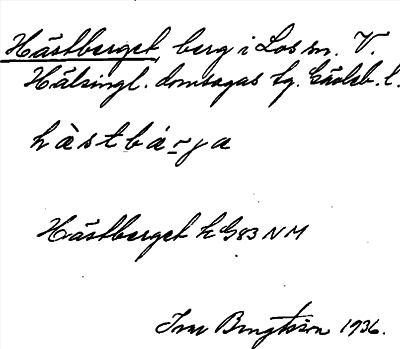 Hästberget, berg i Los sn. V.
Hälsingl. domsagas tg. Gävleb. l.
hàstbárja
Hästberget k G83 NM
Ivar Bengtsson 1936.